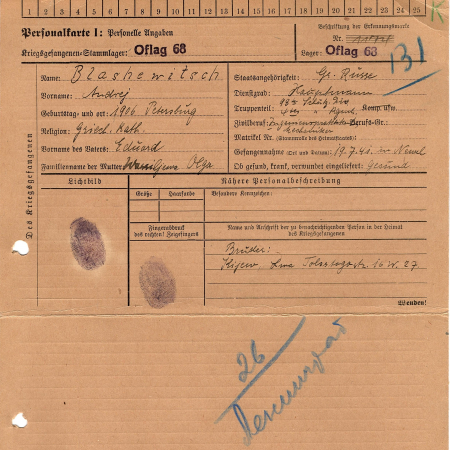 1 2 3 4 5 6 7 8 9 10 11 12 13 14 15 16 17 18 19 20 21 22 23 24 25
K
Personalkarte I: Personelle Angaben
Kriegsgefangenen-Stammlager: Oflag 68
Beschriftung der Erkennungsmarke
Nr.
Lager: Oflag 68
131
Des Kriegsgefangenen
Name: Blashewitsch
Vorname: Andrej
Geburtstag und -ort: 1906 Petersburg
Religion: Griech. Kath.
Vorname des Vaters: Eduard
Familienname der Mutter: Olga
Staatsangehörigkeit: Gr. Russe
Dienstgrad: Hauptmann
Truppenteil: 98 Schütz. Div. Komp. usw.
Zivilberuf: Berufs-Gr.:
Matrikel Nr. (Stammrolle des Heimatstaates):
Gefangennahme (Ort und Datum): 19.7.41. in Newel
Ob gesund, krank, verwundet eingeliefert: Gesund
Lichtbild
Nähere Personalbeschreibung
Größe
Haarfarbe
Besondere Kennzeichen:
Fingerabdruck
des rechten! Zeigefingers
Name und Anschrift der zu benachrichtigenden Person in der Heimat
des Kriegsgefangenen
Bruder:
Kijew, Lwa Tolstogostr. 16 W. 27
Wenden!
26
Ленинград